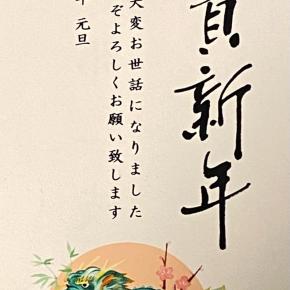 賀新年
大変お世話になりました
ぞよろしくお願い致します
年 元旦